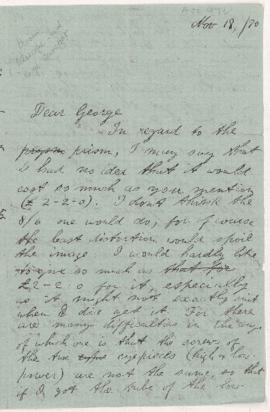 Nov 18, /70
Dear George
In regard to the
prism, I may say that
I had no idea that it would
cost so much as you mention
(£ 2-2-0). I don't think the
8/6 one would do, for of course
the least distortion would spoil
the image. I would hardly like
to give so much as that for
£2-2-0 for it, especially
as it might not exactly suit
when I did get it. For there
are many difficulties in the way
of which one is that the screw of
the two eyepieces (high & low
power) are not the same, so that
if I got the tube of the low